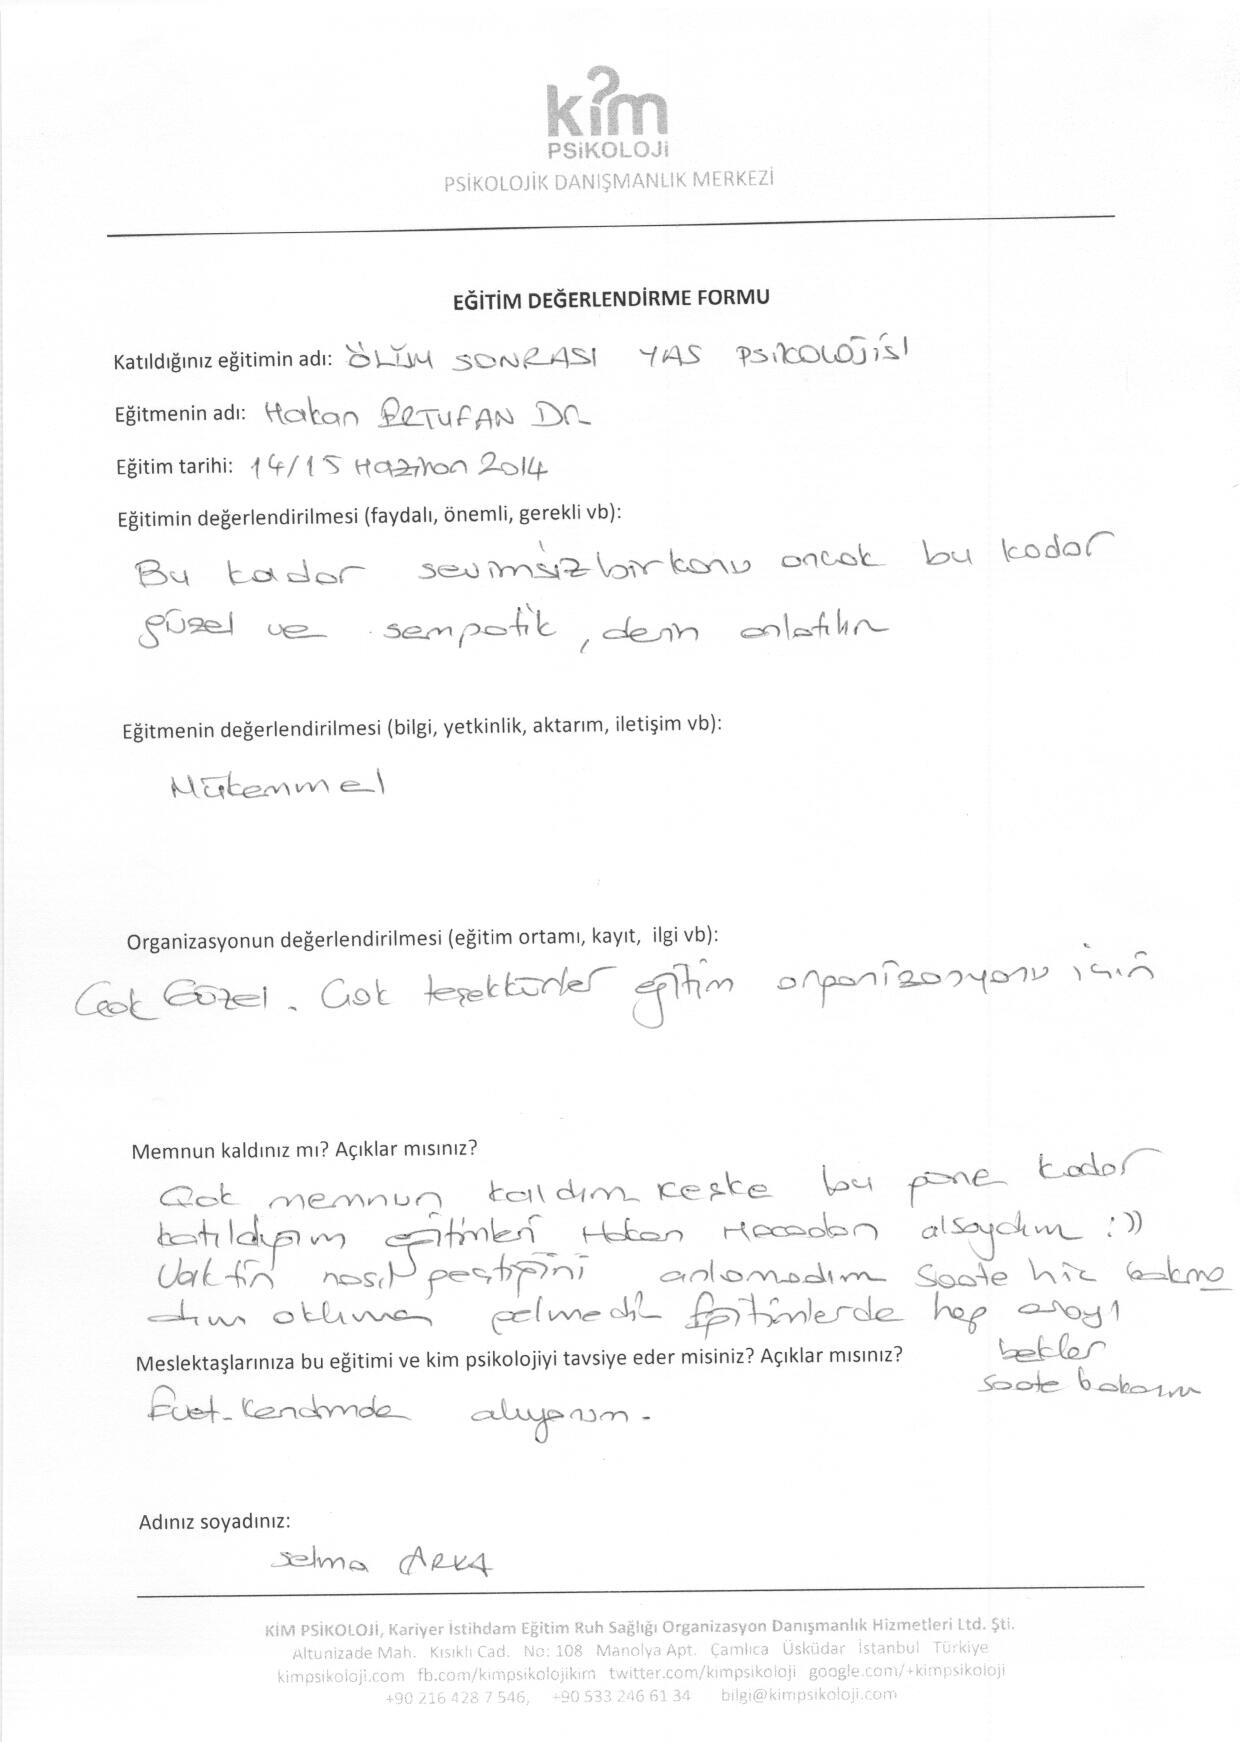 kim
PSİKOLOJİ
PSİKOLOJİK DANIŞMANLIK MERKEZİ
EĞİTİM DEĞERLENDİRME FORMU
Katıldığınız eğitimin adı: ÖLÜM SONRASI YAS PSİKOLOJİSİ
Eğitmenin adı: Hakan ERTUFAN DR
Eğitim tarihi: 14/15 Haziran 2014
Eğitimin değerlendirilmesi (faydalı, önemli, gerekli vb):
Bu kadar sevimsiz bir konu ancak bu kadar
güzel ve sempatik, derin anlatılır
Eğitmenin değerlendirilmesi (bilgi, yetkinlik, aktarım, iletişim vb):
Mükemmel
Organizasyonun değerlendirilmesi (eğitim ortamı, kayıt, ilgi vb):
Çok Güzel. Çok teşekkürler eğitim organizasyonu için
Memnun kaldınız mı? Açıklar mısınız?
Çok memnun kaldım keşke bu güne kadar
katıldığım eğitimleri Hakan Hocadan alsaydım :))
Vaktin nasıl geçtiğini anlamadım saate hiç bakma
dım aklıma gelmedi Eğitimlerde hep arayı
bekler
saate bakarım
Meslektaşlarınıza bu eğitimi ve kim psikolojiyi tavsiye eder misiniz? Açıklar mısınız?
Evet. Kendimde alıyorum.
Adınız soyadınız:
Selma ARKA
KİM PSİKOLOJİ, Kariyer İstihdam Eğitim Ruh Sağlığı Organizasyon Danışmanlık Hizmetleri Ltd. Şti.
Altunizade Mah. Kısıklı Cad. No: 108 Manolya Apt. Çamlıca Üsküdar İstanbul Türkiye
kimpsikoloji.com fb.com/kimpsikolojikim twitter.com/kimpsikoloji google.com/+kimpsikoloji
+90 216 428 7 546, +90 533 246 61 34 bilgi@kimpsikoloji.com